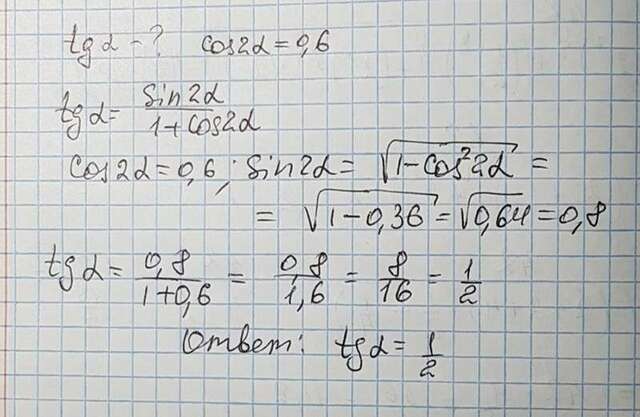 tg α - ? cos2α = 0,6
tg α = sin2α / 1 + cos2α
cos2α = 0,6; sin2α = √(1 - cos²2α) =
= √(1 - 0,36) = √0,64 = 0,8
tg α = 0,8 / 1 + 0,6 = 0,8 / 1,6 = 8/16 = 1/2
Ответ: tg α = 1/2